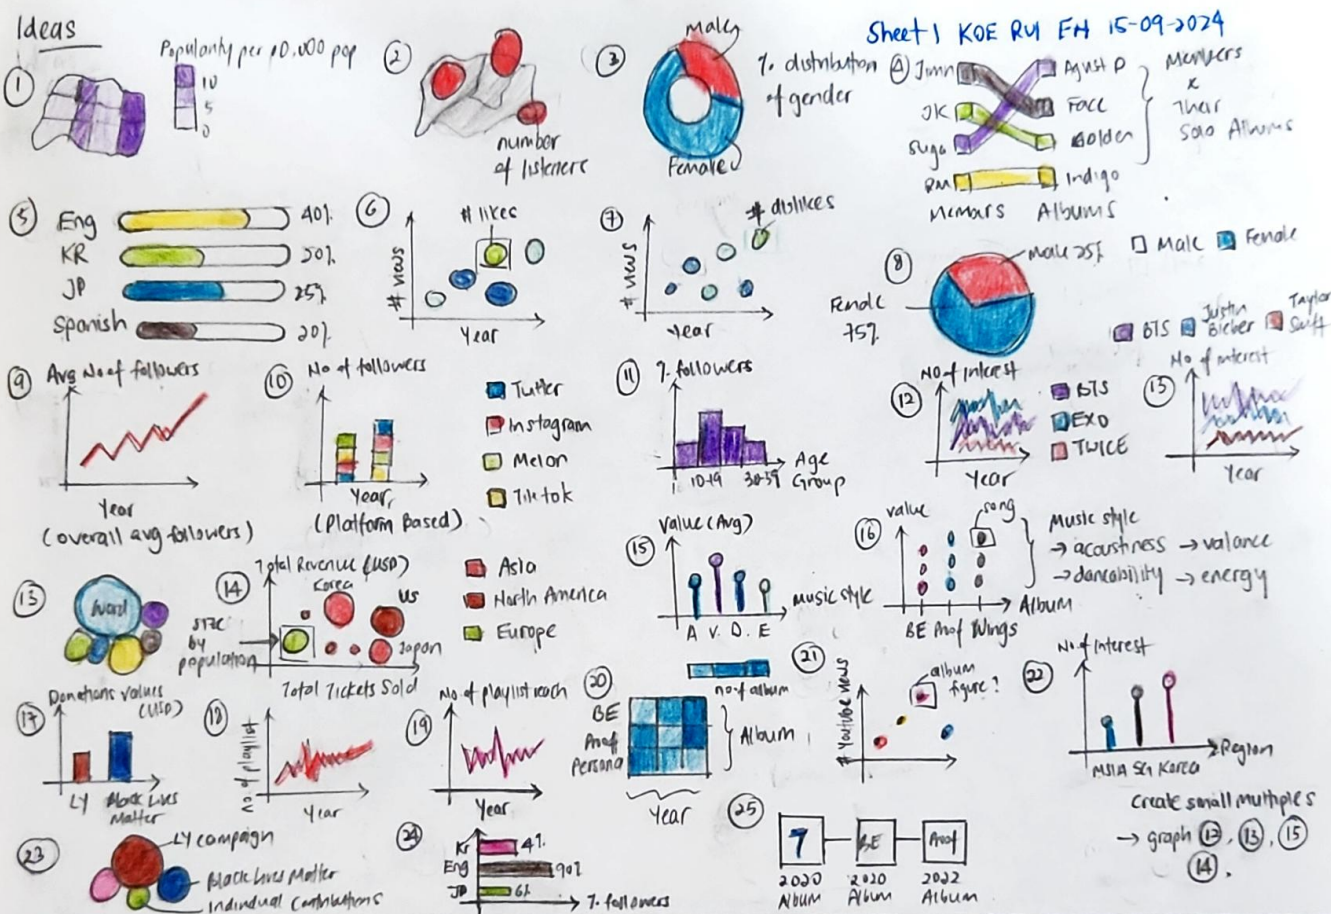 Ideas
Sheet 1 KOE RUI EN 15-09-2024
1
Popularity per 10,000 pop
10
5
0
2
number
of listeners
3
Male
Female
% distribution
of gender
4
Jimin
JK
Suga
RM
Agust D
Face
Golden
Indigo
Members Albums
Members
x
Their
Solo Albums
5
Eng 40%
KR 50%
JP 25%
Spanish 20%
6
# likes
# news
Year
7
# dislikes
# news
Year
8
Male 25%
Female
75%
Male Female
9
Avg No of followers
Year
(overall avg followers)
10
No of followers
Year
(Platform Based)
Twitter
Instagram
Melon
Tiktok
11
% followers
10-19 30-39
Age
Group
12
No of Interest
Year
BTS
EXO
TWICE
13
BTS Justin
Bieber Taylor
Swift
No of interest
Year
13
Word
14
Total Revenue (USD)
Korea
US
Japan
size
by
population
Total Tickets Sold
Asia
North America
Europe
15
Value (Avg)
A V. D. E
Music style
16
value
song
BE Proof Wings
Album
Music style
→ acoustiness → valance
→ dancability → energy
17
Donations values
(USD)
LY Black Lives
Matter
18
No of playlist
Year
19
No. of playlist reach
Year
20
no. of album
BE
Proof
Persona
Album
Year
21
# Youtube news
album
figure?
22
No. of Interest
MSIA SG Korea
Region
Create small multiples
→ graph 12, 13, 15
14.
23
LY campaign
Black Lives Matter
Individual Contributions
24
Kr 4%
Eng 90%
JP 6%
% followers
25
7 BE Proof
2020 2020 2022
Album Album Album